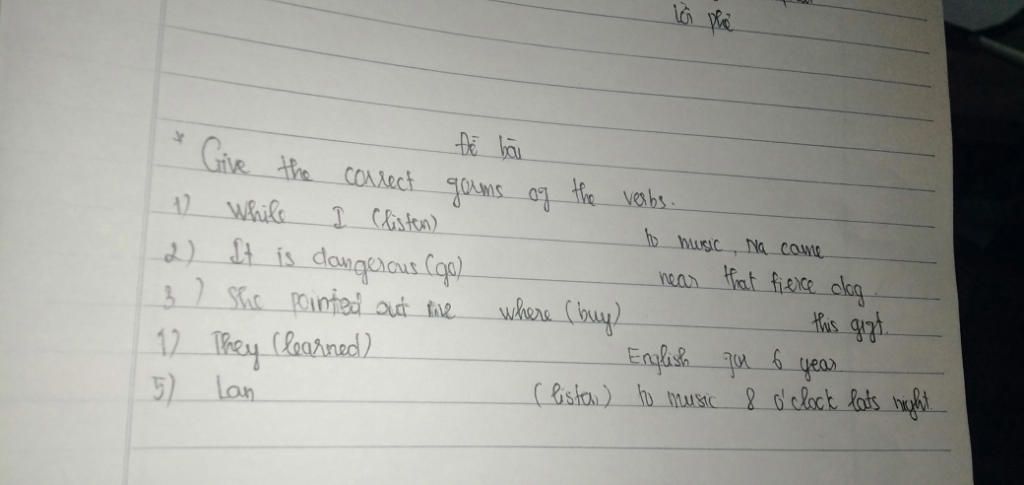 lời phê
Đề bài
* Give the correct forms of the verbs.
1) While I (listen) to music, Na came
2) It is dangerous (go) near that fierce dog
3) She pointed out me where (buy) this gift.
4) They (learned) English for 6 year
5) Lan (listen) to music 8 o'clock lats night.